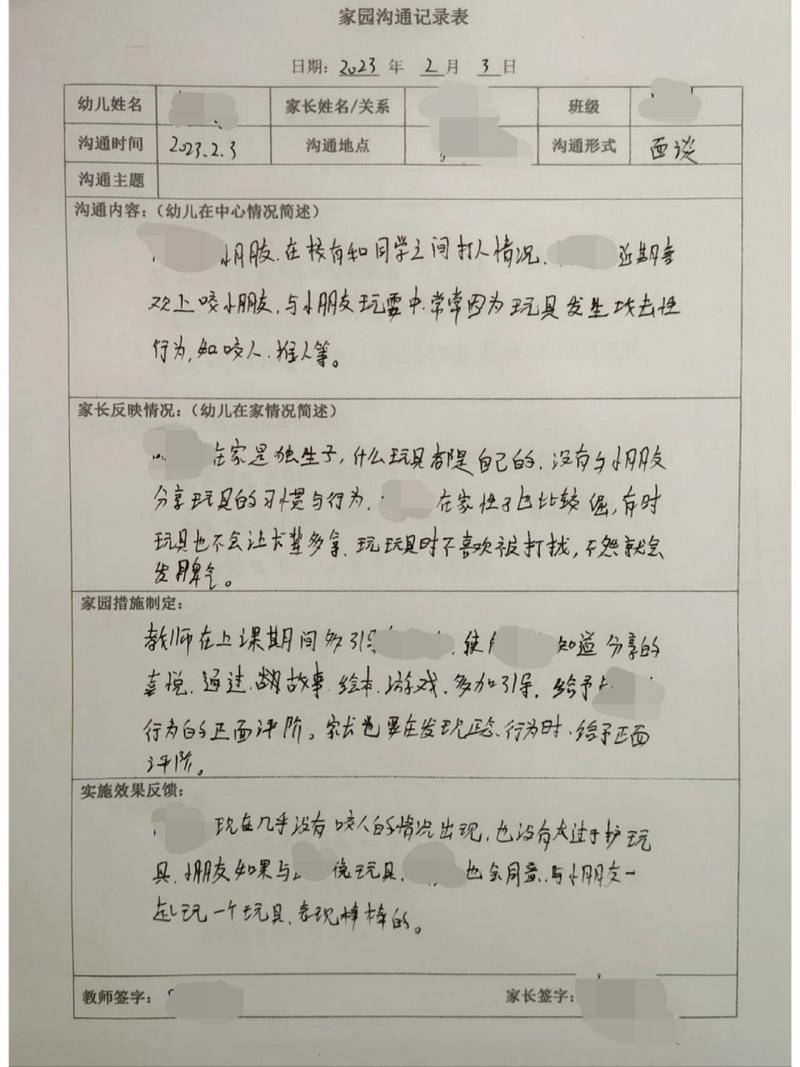 家园沟通记录表
日期：2023 年 2 月 3 日
幼儿姓名 家长姓名/关系 班级
沟通时间 2023.2.3 沟通地点 沟通形式 面谈
沟通主题
沟通内容：（幼儿在中心情况简述）
小朋友，在校有和同学之间打人情况、 近期喜
欢上咬小朋友，与小朋友玩耍中，常常因为玩具发生攻击性
行为，如咬人、推人等。
家长反映情况：（幼儿在家情况简述）
在家是独生子，什么玩具都是自己的，没有与小朋友
分享玩具的习惯与行为， 在家性子也比较倔，有时
玩具也不会让长辈多拿，玩玩具时不喜欢被打扰，不然就会
发脾气。
家园措施制定：
教师在上课期间多引导 ，使 知道分享的
喜悦，通过 故事、绘本、游戏，多加引导，给予
行为的正面评阶。家长也要在发现正 行为时，给予正面
评阶。
实施效果反馈：
现在几乎没有咬人的情况出现，也没有太过于护玩
具，小朋友如果与 玩具， 也会同意，与小朋友一
起玩一个玩具，表现棒棒的。
教师签字： 家长签字：